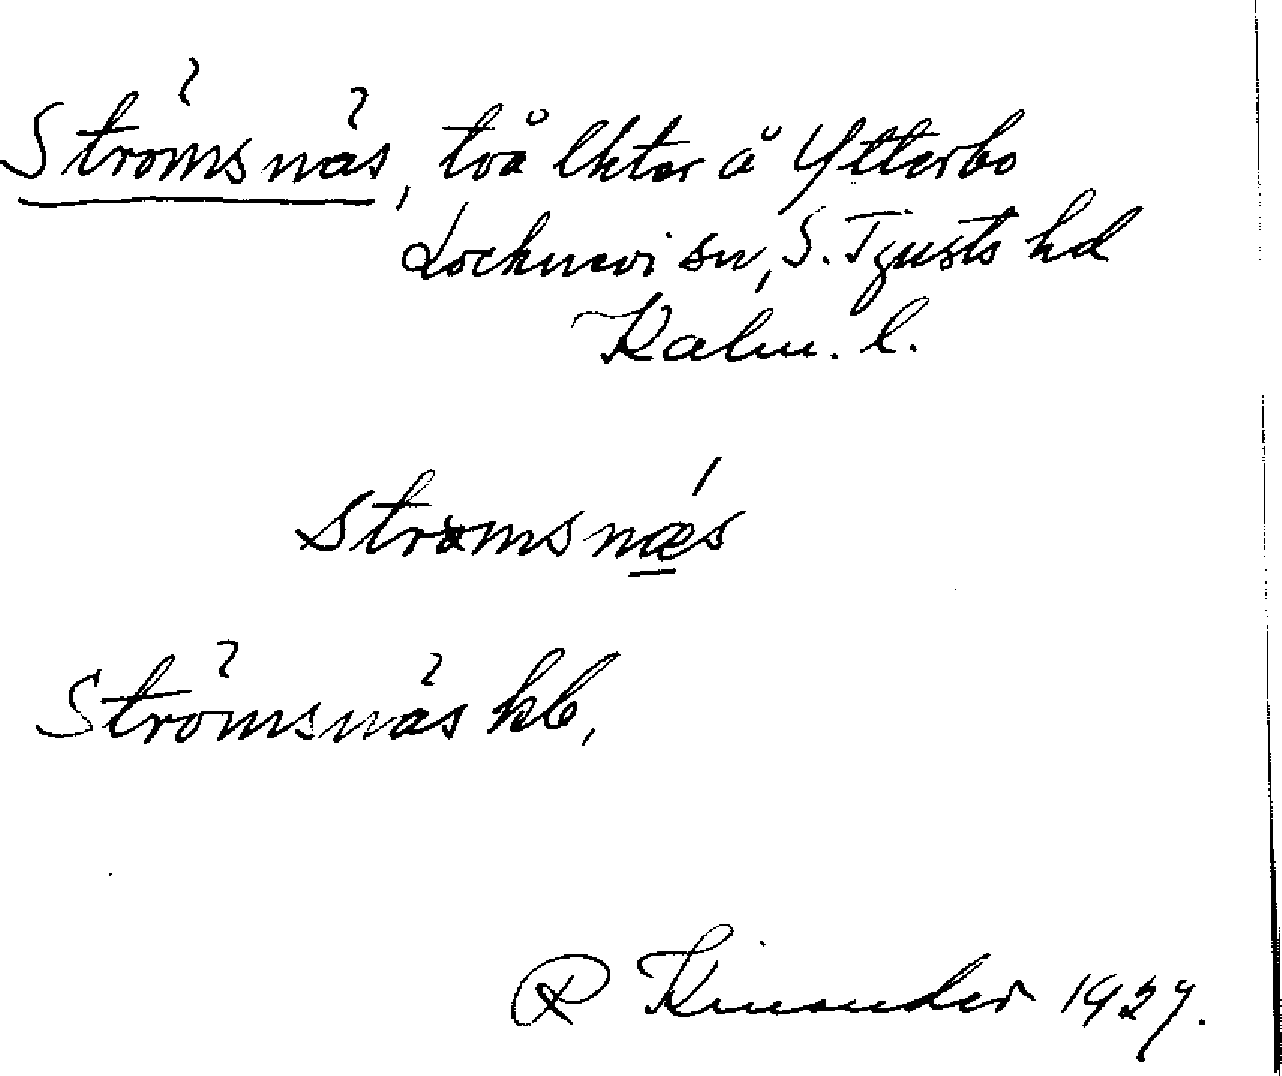 Strömsnäs, två lhter å Ytterbo
Locknevi sn, S. Tjusts hd
Kalm. l.
strømsnæs
Strömsnäs kb,
R Kinander 1927.